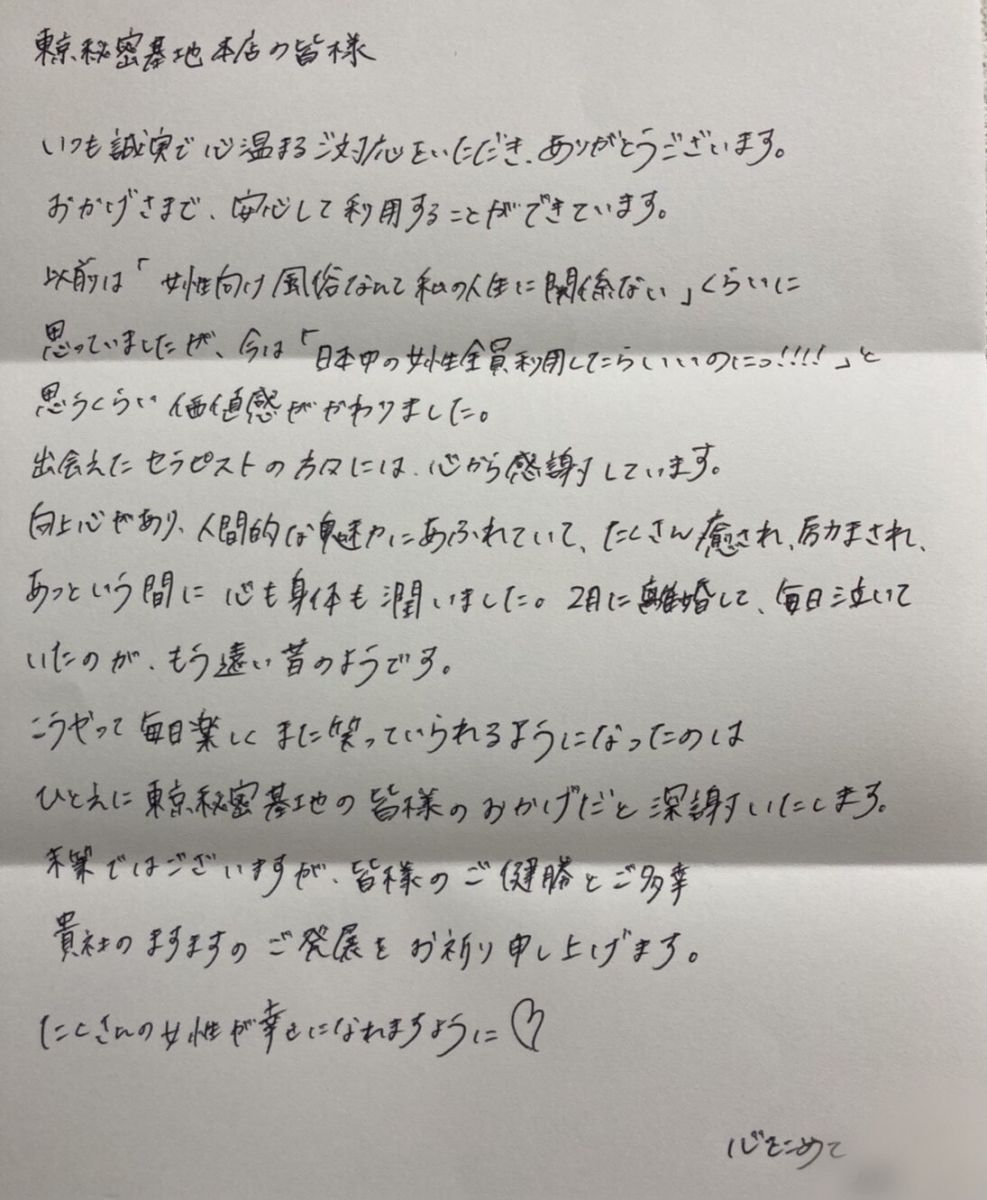 東京秘密基地本店の皆様
いつも誠実で心温まるご対応をいただき、ありがとうございます。
おかげさまで、安心して利用することができています。
以前は「女性向け風俗なんて私の人生に関係ない」くらいに
思っていましたが、今は「日本中の女性全員利用したらいいのにっ!!!!」と
思うくらい価値感ががわりました。
出会えたセラピストの方々には、心から感謝しています。
向上心があり、人間的な魅力にあふれていて、たくさん癒され、励まされ、
あっという間に心も身体も潤いました。2月に離婚して、毎日泣いて
いたのが、もう遠い昔のようです。
こうやって毎日楽しくまた笑っていられるようになったのは
ひとえに東京秘密基地の皆様のおかげだと深謝いたします。
末筆ではございますが、皆様のご健勝とご多幸
貴社のますますのご発展をお祈り申し上げます。
たくさんの女性が幸せになれますように♡
心をこめて